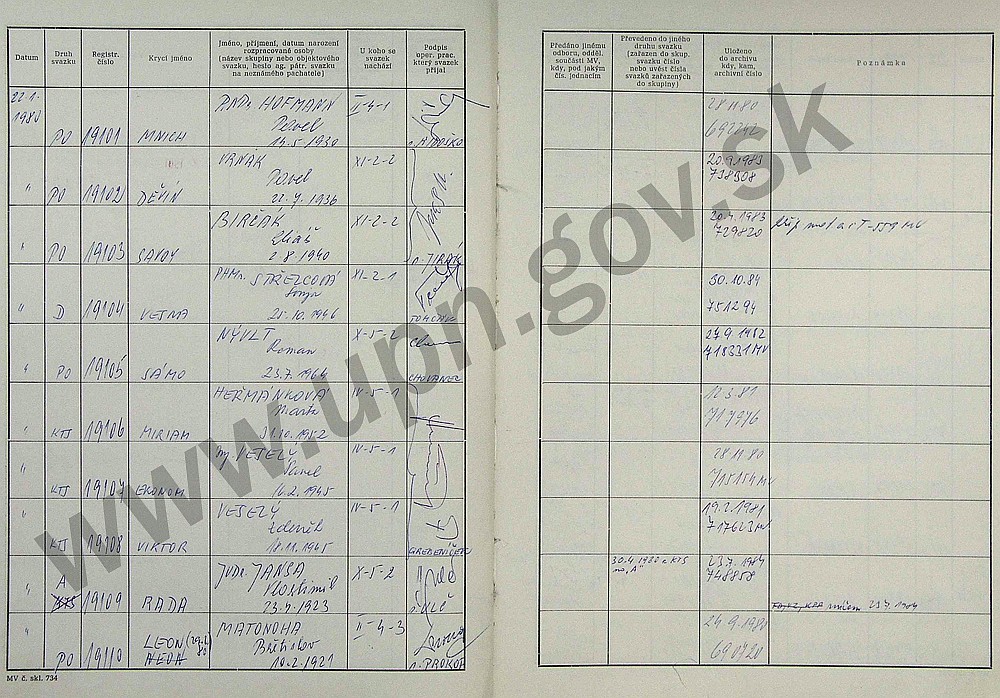 Datum
Druh svazku
Registr. číslo
Krycí jméno
Jméno, příjmení, datum narození
rozpracované osoby
(název skupiny nebo objektového
svazku, heslo ag. pátr. svazku
na neznámého pachatele)
U koho se
svazek
nachází
Podpis
oper. prac.
který svazek
přijal
Předáno jinému
odboru, odděl.
součásti MV,
kdy, pod jakým
čís. jednacím
Převedeno do jiného
druhu svazku
(zařazen do skup.
svazku číslo
nebo uvést čísla
svazků zařazených
do skupiny)
Uloženo
do archivu
kdy, kam,
archivní číslo
Poznámka
22.1.
1980
HOFMANN
II-4-1
28.11.80
Pavel
692242
PO 19101 MNICH 14.5.1930
VRŇÁK XI-2-2 20.9.1983
Pavel 738308
" PO 19102 DĚVÍN 22.7.1936
BIRČÁK XI-2-2 20.4.1983
Eliáš 729820
" PO 19103 SAVOY 2.8.1940 n. JIRÁK
STŘELCOVÁ XI-2-1 30.10.84
Sonja 751294
" D 19104 VESNA 25.10.1946 TOMČÁK
NÝVLT X-5-2 27.9.1982
Roman 718331 MV
" PO 19105 SÁMO 23.7.1964 CHOVANEC
HEŘMÁNKOVÁ IV-5-1 12.3.81
Marta 717976
" KTS 19106 MIRIAM 31.10.1952
Ing. VESELÝ IV-5-1 28.11.80
Pavel 715154 MV
" KTS 19107 EKONOM 16.2.1945
VESELÝ IV-5-1 19.2.1981
Zdeněk 717623 MV
" KTS 19108 VIKTOR 18.11.1945 GREBENÍČEK
A JUDr. JANSA X-5-2 30.4.1980 z KTS 23.7.1984
Vlastimil na "A" 748858
" KTS 19109 RADA 23.4.1923
MATONOHA II-4-3 24.9.1980
LEON Břetislav 690720
" PO 19110 10.2.1921 n. PROKOP
MV č. skl. 734
www.upn.gov.sk